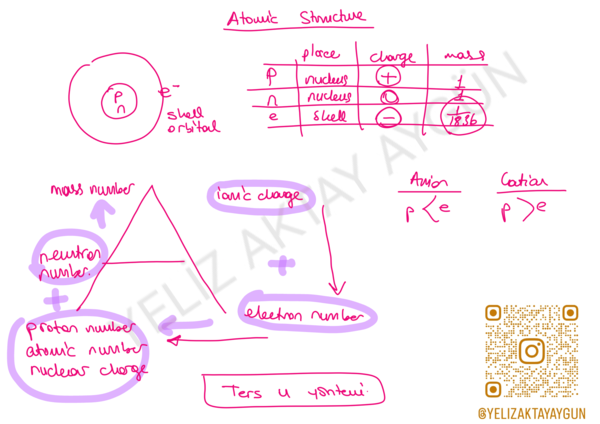 Atomic Structure
place charge mass
P nucleus + 1
n nucleus 0 1
e shell - 1/1836
P
n
e-
shell
orbital
mass number
neutron
number
+
proton number
atomic number
nuclear charge
ionic charge
+
electron number
Anion Cation
p < e p > e
Ters u yöntemi
YELIZ AKTAY AYGÜN
@YELIZAKTAYAYGUN